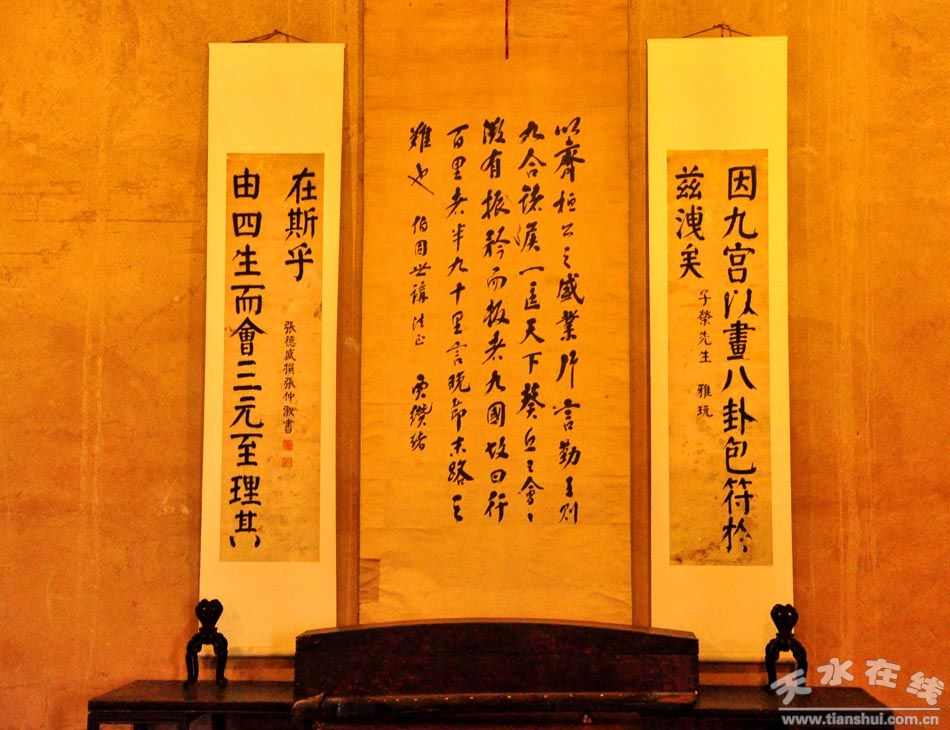 因九宫以畫八卦包符於
茲洩矣
子榮先生 雅玩
以齊桓公之盛業片言勤王則
九合諸侯一匡天下葵丘之會
微有振矜而叛者九國故曰行
百里者半九十里言晚節末路之
難也 伯固世講法正 賈纘緒
由四生而會三元至理其
在斯乎
張德盛撰張仲淑書
天水在线
www.tianshui.com.cn